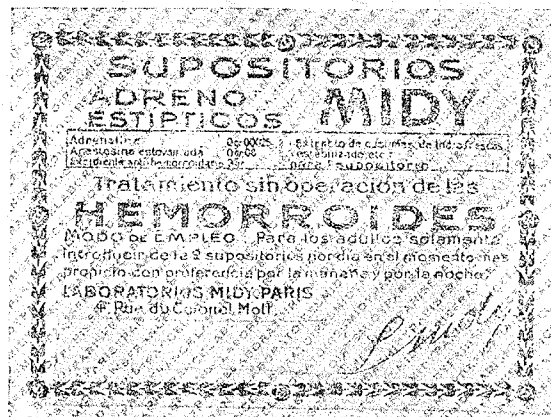 SUPOSITORIOS
ADRENO
ESTIPTICOS
MIDY
Adrenalina 0gr00025
estovainada 0gr08
Extracto de de Indias frescas
estabilizado, etc
para 1 supositorio
Tratamiento sin operación de las
HEMORROIDES
MODO DE EMPLEO : Para los adultos solamente
introducir de 1 a 2 supositorios por dia en el momento mas
propicio con preferencia por la mañana y por la noche
LABORATORIOS MIDY. PARIS
4, Rue du Colonel Moll